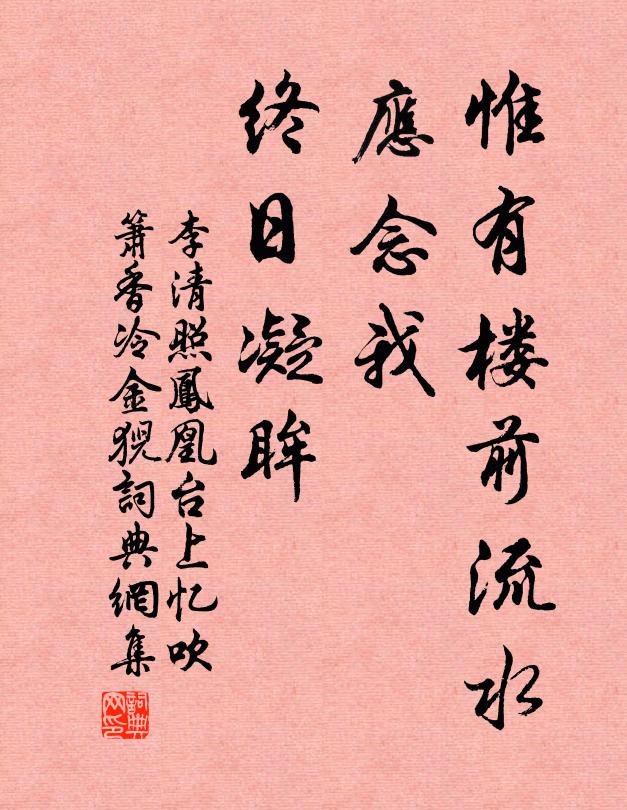 惟有楼前流水
應念我
終日凝眸
李清照鳳凰台上忆吹
簫香冷金猊詞典網集
詞典
网印